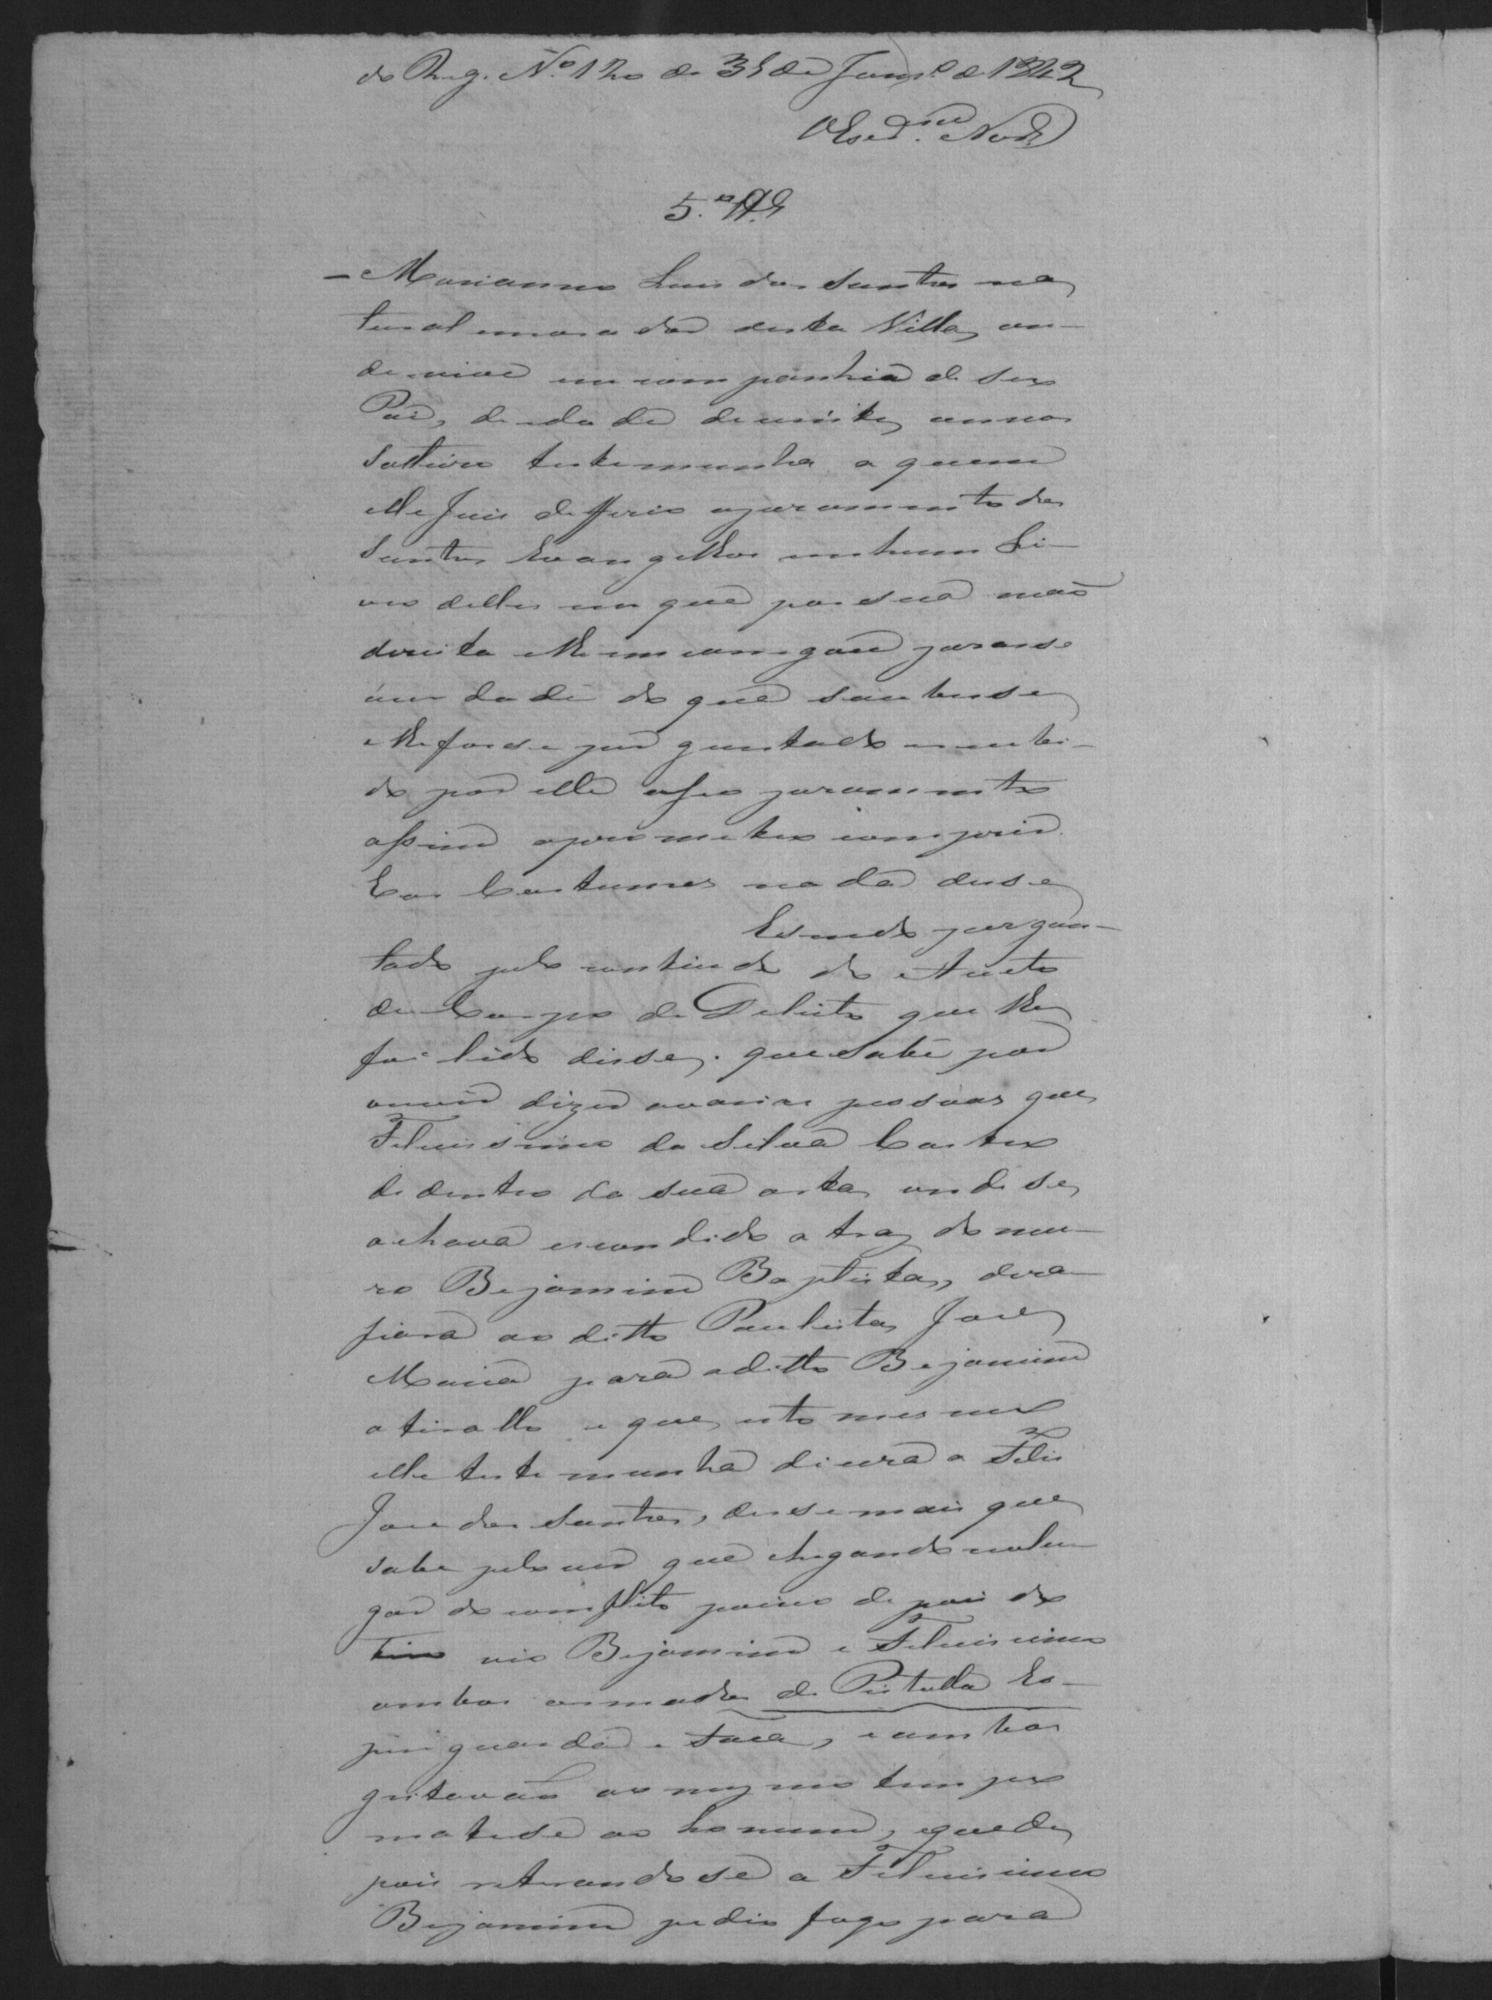 do Reg. N.º 120 de 31 de Janr.º de 1842
5.ª Tª
- Marianno Luis dos Santos na
tural morador desta Villa, on-
de vive em companhia de seu
Pai, de idade de vinte annos
solteiro testemunha a quem
elle Juis defferio o juramento dos
Santos Evangelhos em hum Li-
vro delles em que pos sua mão
direita e lhe encarregou jurasse
averdade do que soubesse
e lhe fosse perguntado e recebi-
do por elle o seo juramento
assim o prometeo comprir.
E os Costumes nada disse
E sendo pergun-
tado pelo contiudo do Aucto
de Corpo de Delicto que lhe
foi lido disse, que sabe por
ouvir dizer a varias pessoas que
Felicissimo da Silva Castro
de dentro da sua orta, onde se
achava escondido a traz do mu-
ro Bejamim Baptista, desa-
fiara ao ditto Paulista José
Maria para o ditto Bejamim
atirallo e que isto mesmo
elle testemunha dicera a Felis
José dos Santos, disse mais que
sabe pelo ver que chegando no lu-
gar do conflito pouco depois do
tiro vio Bejamim e Felicissimo
ambos armados de Pistolla Es-
pinguarda e Faca, e ambos
gritavão ao mesmo tempo
matese ao homem, e que de
pois retirandose a Felicissimo
Bejamim pedio fogo para